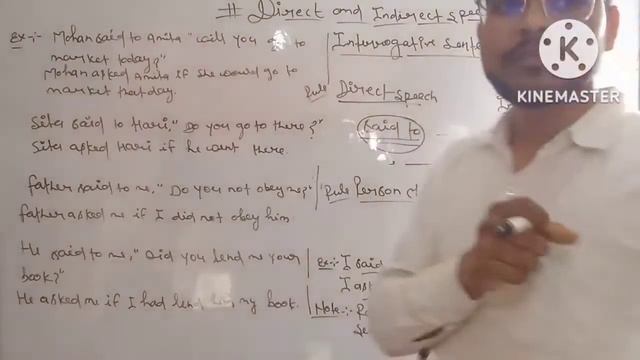 # Direct and Indirect Spee
Ex:- Mohan said to Anita "will you go to
market today?"
Mohan asked Anita if she would go to
market that day.
Sita said to Hari, "Do you go to there?"
Sita asked Hari if he went there.
father said to me, "Do you not obey me?"
father asked me if I did not obey him
He said to me, "Did you lend me your
book?"
He asked me if I had lend him my book.
Interrogative Sente
Rule Direct speech
said to
Rule Person
Ex:- I said
I as
Note:-
K
KINEMASTER